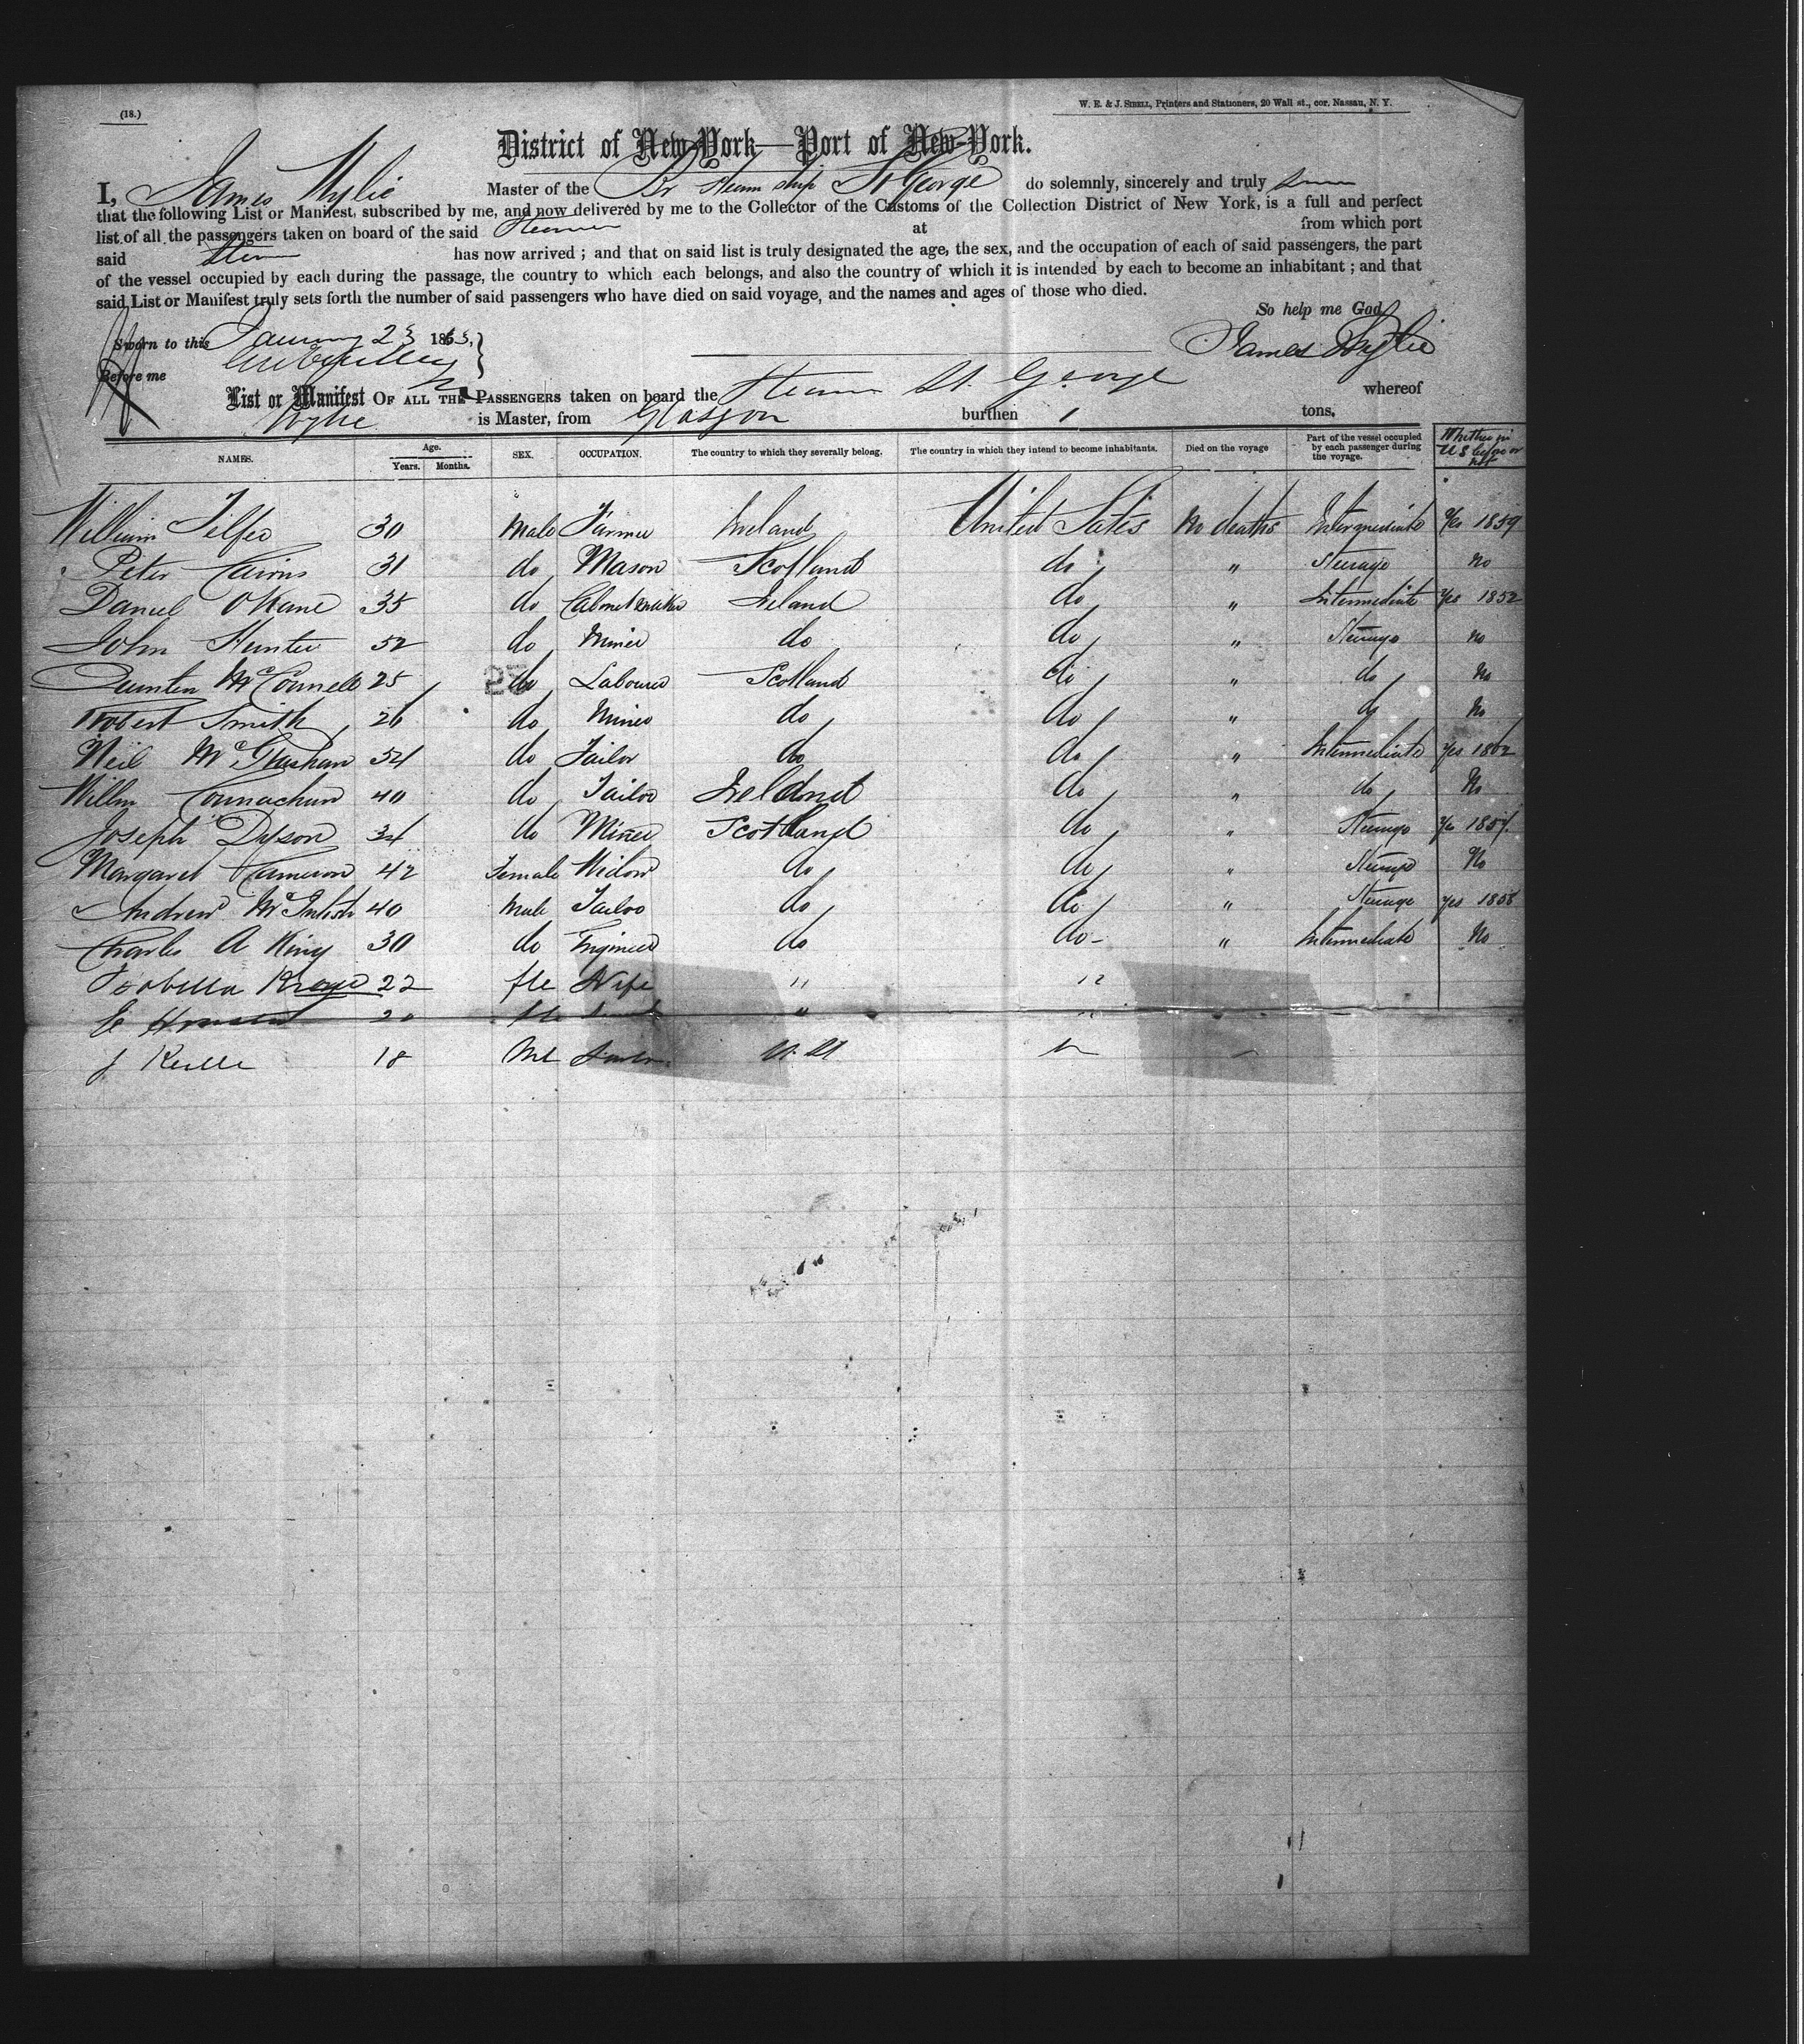 (18.)
W. E. & J. SIBELL, Printers and Stationers, 20 Wall st., cor. Nassau, N. Y.
District of New-York—Port of New-York.
I, James Wylie Master of the Br Steam ship St George do solemnly, sincerely and truly
that the following List or Manifest, subscribed by me, and now delivered by me to the Collector of the Customs of the Collection District of New York, is a full and perfect
list of all the passengers taken on board of the said Steamer at from which port
said has now arrived ; and that on said list is truly designated the age, the sex, and the occupation of each of said passengers, the part
of the vessel occupied by each during the passage, the country to which each belongs, and also the country of which it is intended by each to become an inhabitant ; and that
said List or Manifest truly sets forth the number of said passengers who have died on said voyage, and the names and ages of those who died.
So help me God,
Sworn to this January 23 1863, James Wylie
Before me
List or Manifest OF ALL THE PASSENGERS taken on board the Steamer St. George whereof
Wylie is Master, from Glasgow burthen tons.
NAMES. Age. Years. Months. SEX. OCCUPATION. The country to which they severally belong. The country in which they intend to become inhabitants. Died on the voyage Part of the vessel occupied by each passenger during the voyage. Whether in U S before or not
William Telfer 30 Male Farmer Ireland United States No deaths Intermediate Yes 1859
Peter Cairns 31 do Mason Scotland do " Steerage No
Daniel O'Kane 35 do Cabinet maker Ireland do " Intermediate Yes 1852
John Hunter 52 do Miner do do " Steerage No
Quintin McConnell 25 do Labourer Scotland do " do No
Robert Smith 26 do Miner do do " do No
Neil McGlashan 54 do Tailor do do " Intermediate Yes 1862
Willm Connachan 40 do Tailor Ireland do " do No
Joseph Dyson 34 do Miner Scotland do " Steerage Yes 1857
Margaret Cameron 42 Female Widow do do " Steerage No
Andrew McIntosh 40 Male Tailor do do " Steerage Yes 1858
Charles A King 30 do Engineer do do " Intermediate No
Isabella 22 fle Wife " "
E 20 fle " "
J 18 Ml U. St